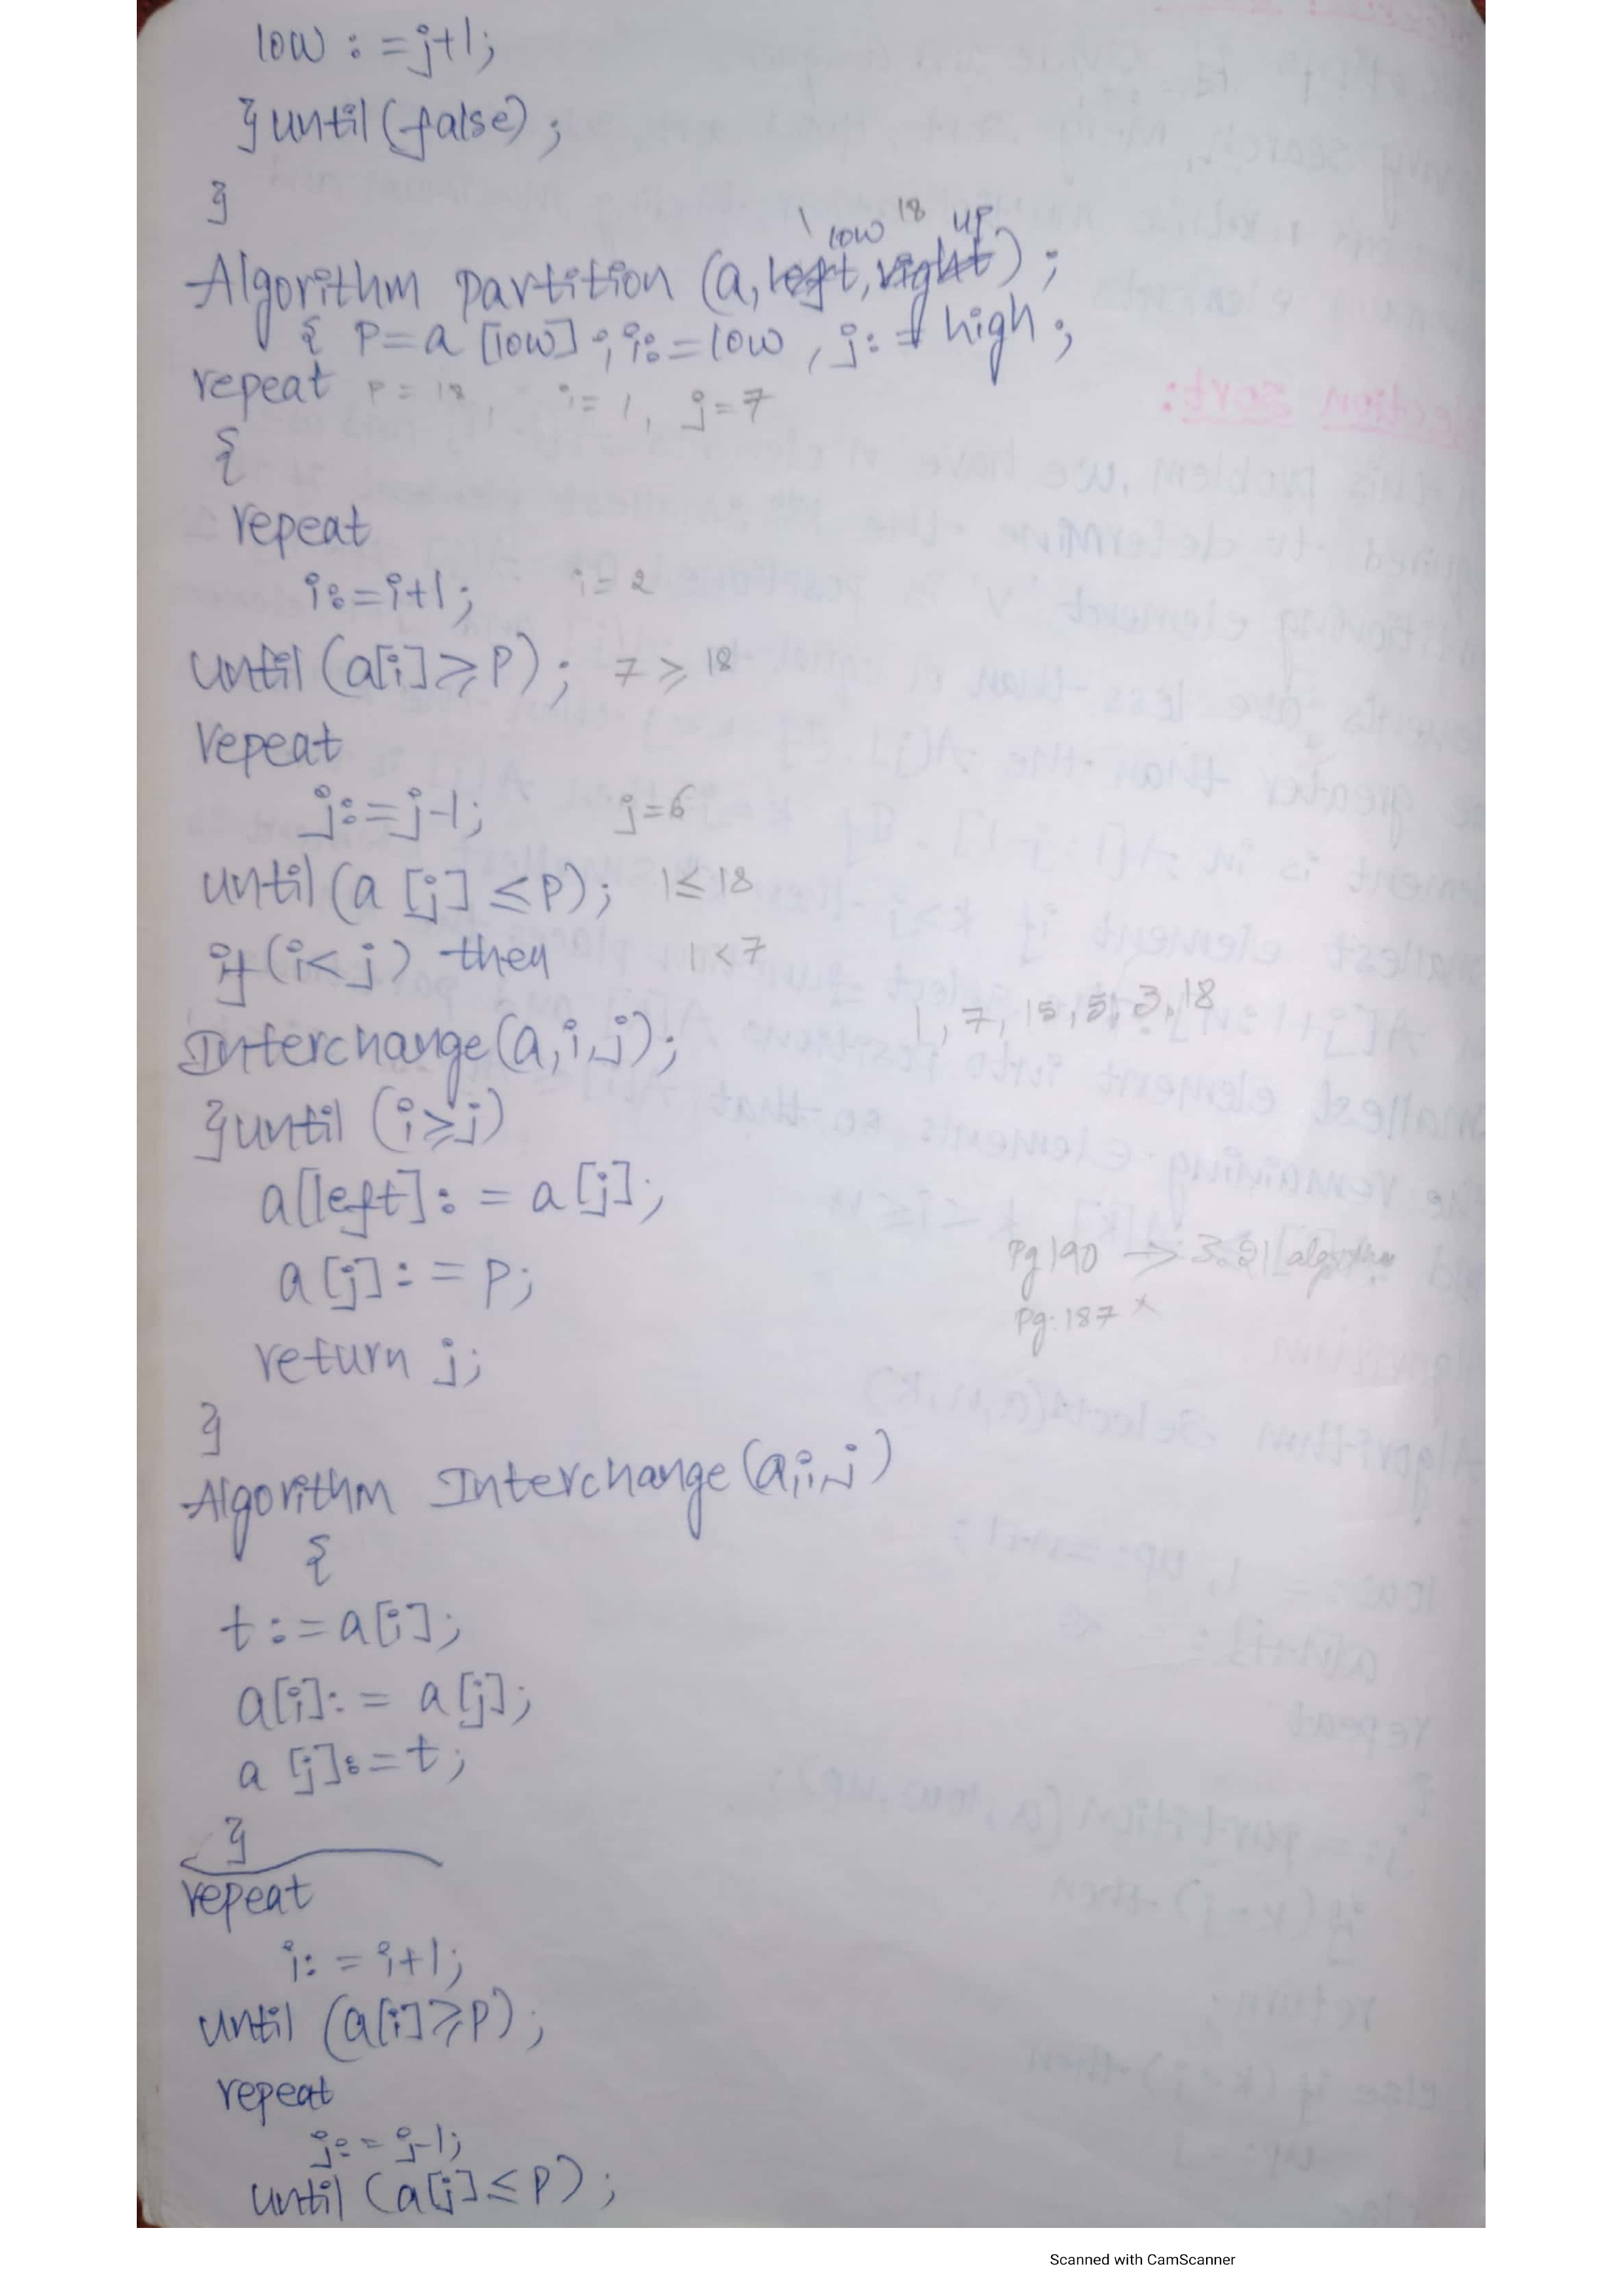 low : =j+1;
}until(false);
}
\ low 18 up
Algorithm partition (a, left, right);
{ P=a [low] ; i:=low , j: = high ;
repeat P = 18, i= 1, j=7
{
repeat
i:=i+1; i=2
until (a[i]≥P); 7 ≥ 18
repeat
j:=j-1; j=6
until (a [j] ≤P); 1≤ 18
if (i< j) then 1<7
1, 7, 15, 5, 3, 18
Interchange(a,i,j);
}until (i≥j)
a[left]: = a[j];
Pg 190 → 3.21
a[j]: = p;
Pg:187 x
return j;
}
Algorithm Interchange(a,i,j)
{
t:=a[i];
a[i]:= a[j];
a [j]:=t;
}
repeat
i: = i+1;
until (a[i]≥P);
repeat
j:= j-1;
until (a[j]≤P);
Scanned with CamScanner